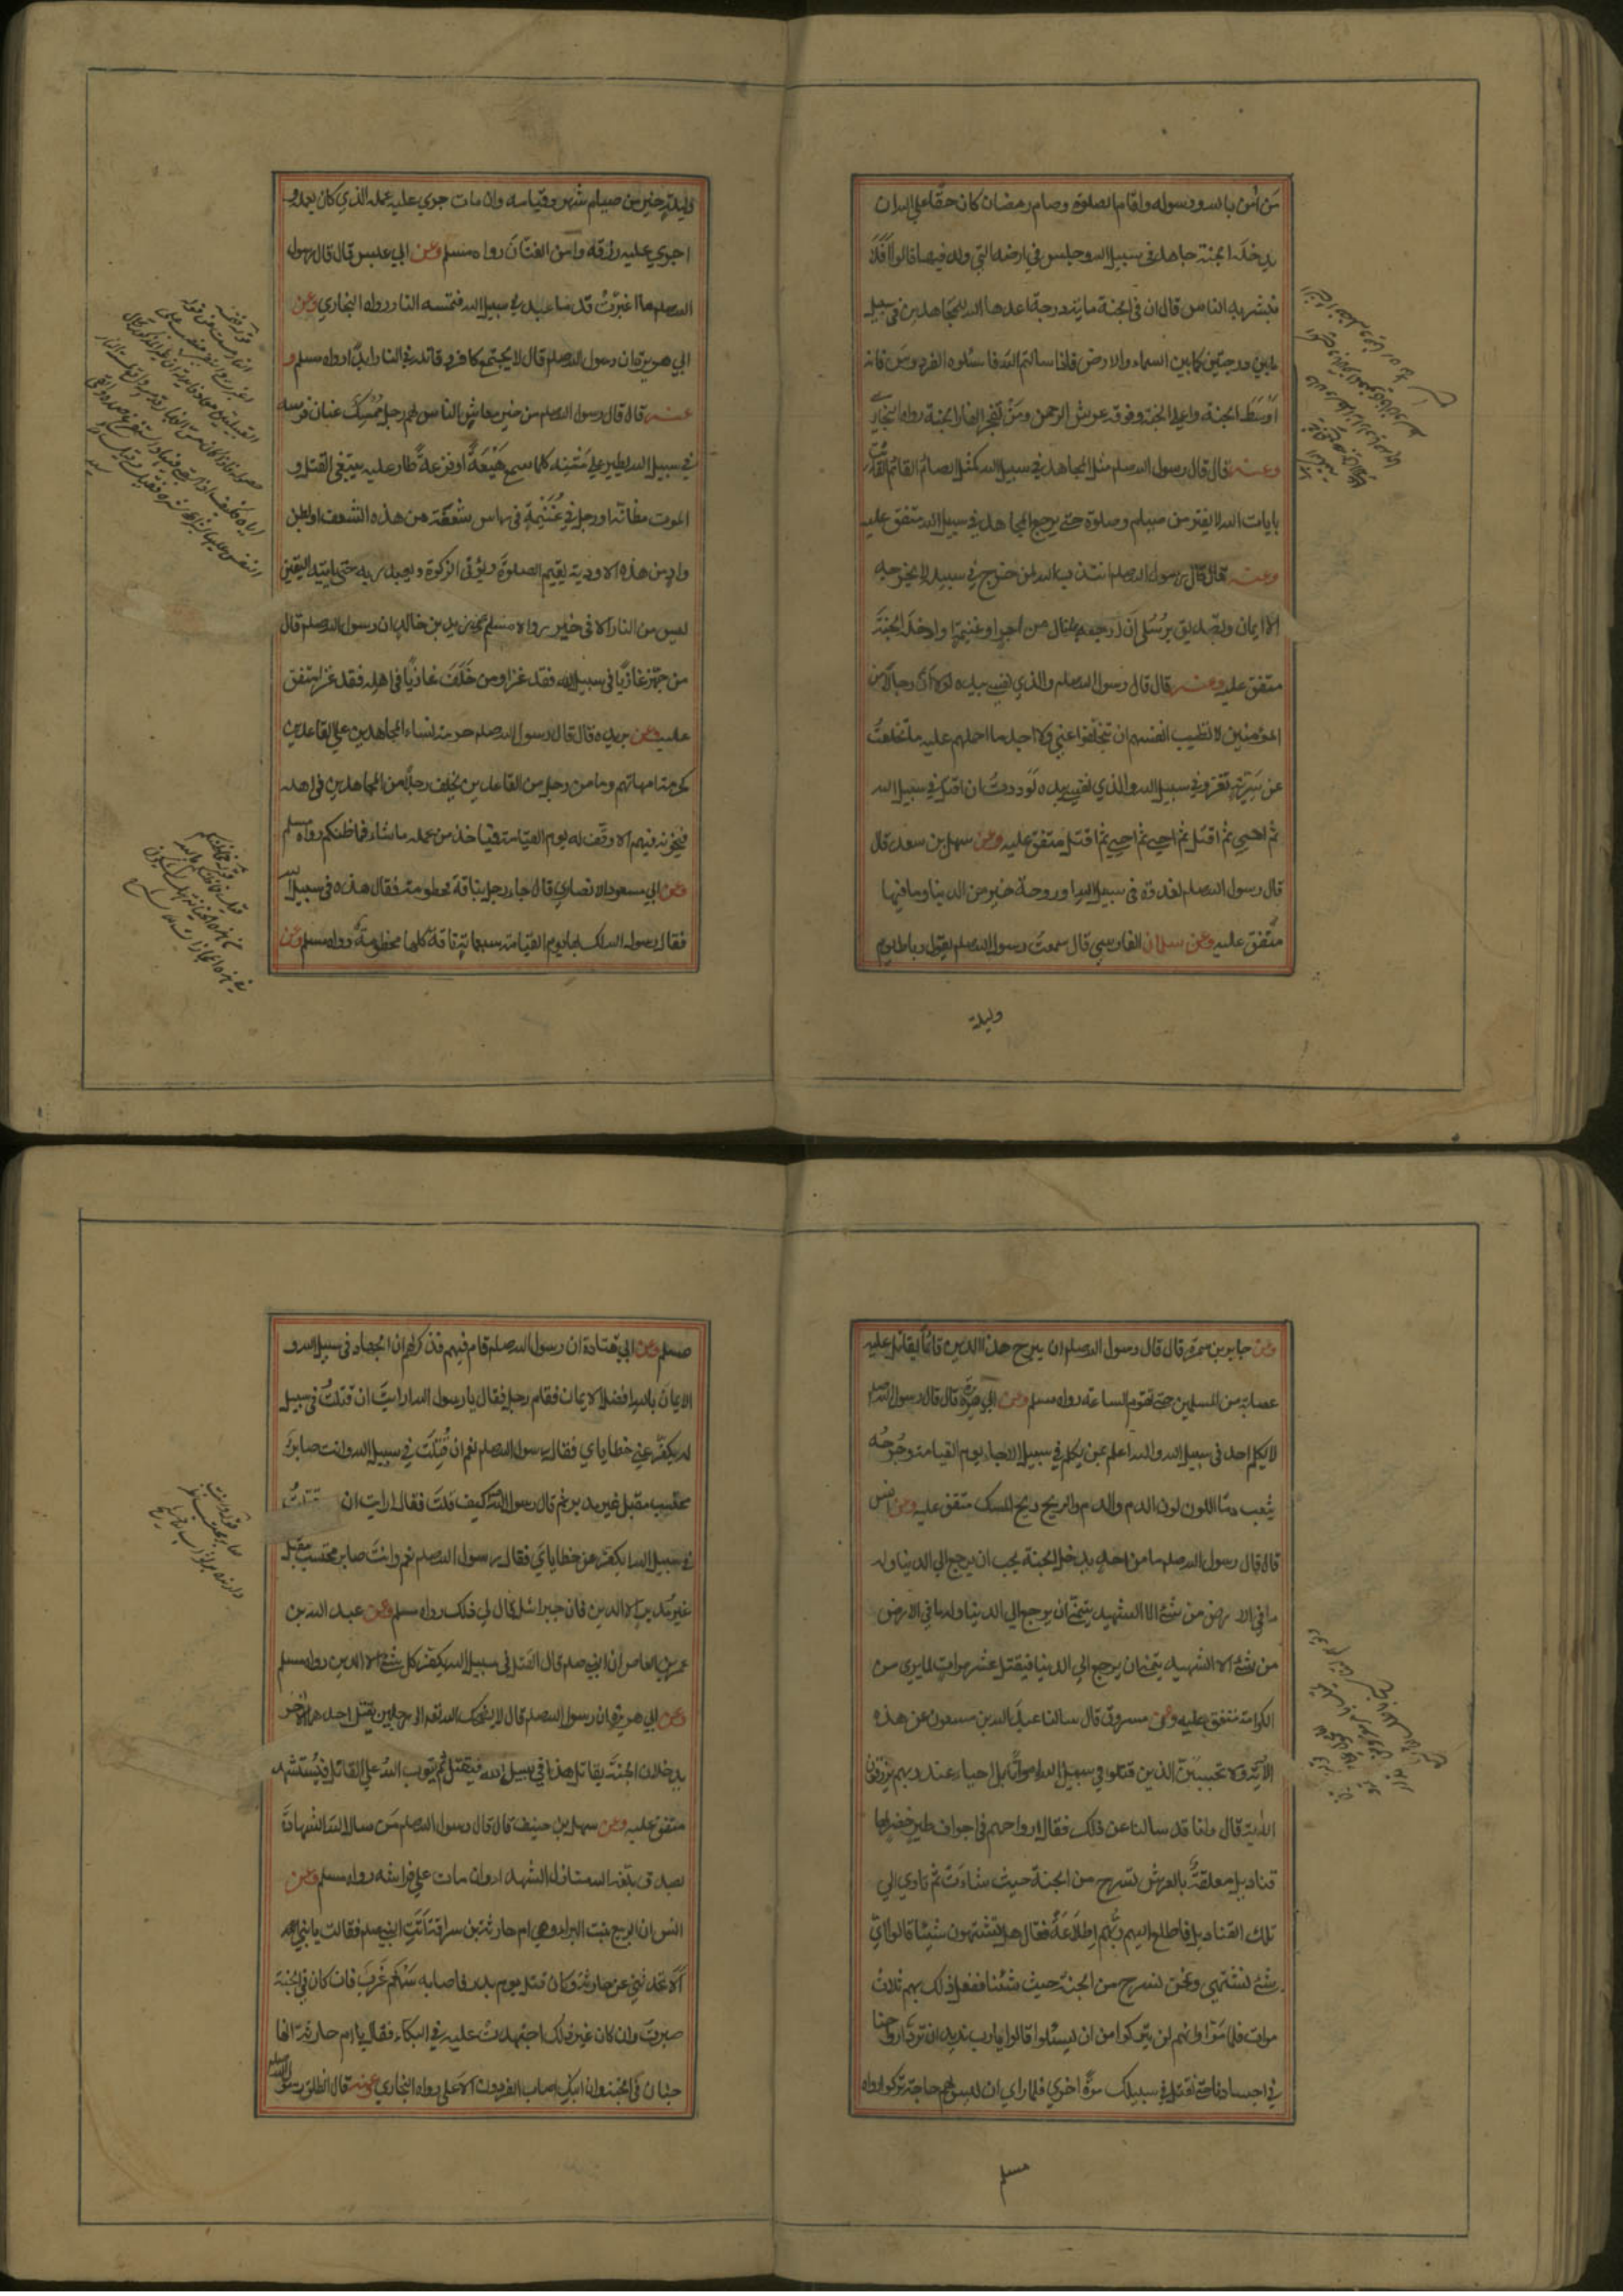 من آمن بالله ورسوله واقام الصلوة وصام رمضان كان حقا على الله ان
يدخله الجنة جاهد في سبيل الله او جلس في ارضه التي ولد فيها قالوا افلا
نبشر به الناس قال ان في الجنة ماية درجة اعدها الله للمجاهدين في سبيل
ما بين درجتين كما بين السماء والارض فاذا سالتم الله فاسئلوه الفردوس فانه
اوسط الجنة واعلى الجنة وفوقه عرش الرحمن ومنه تفجر انهار الجنة رواه البخاري
وعنه قال قال رسول الله صلعم مثل المجاهد في سبيل الله كمثل الصائم القائم القانت
بايات الله لا يفتر من صيام وصلوة حتى يرجع المجاهد في سبيل الله متفق عليه
وعنه قال قال رسول الله صلعم انتدب الله لمن خرج في سبيله لا يخرجه
الا ايمان وتصديق برسلي ان ارجعه بما نال من اجر او غنيمة او ادخله الجنة
متفق عليه وعنه قال قال رسول الله صلعم والذي نفسي بيده لولا ان رجالا من
المؤمنين لا تطيب انفسهم ان يتخلفوا عني ولا اجد ما احملهم عليه ما تخلفت
عن سرية تغزو في سبيل الله والذي نفسي بيده لوددت ان اقتل في سبيل الله
ثم احيى ثم اقتل ثم احيى ثم احيى ثم اقتل متفق عليه وعن سهل بن سعد قال
قال رسول الله صلعم لغدوة في سبيل الله او روحة خير من الدنيا وما فيها
متفق عليه وعن سلمان الفارسي قال سمعت رسول الله صلعم يقول رباط يوم
وليلة
وليلة خير من صيام شهر وقيامه وان مات جري عليه عمله الذي كان يعمله و
اجري عليه رزقه وامن الفتان رواه مسلم وعن ابي عبس قال قال رسول
الله صلعم ما اغبرت قدما عبد في سبيل الله فتمسه النار رواه البخاري وعن
ابي هريرة ان رسول الله صلعم قال لا يجتمع كافر وقاتله في النار ابدا رواه مسلم و
عنه قال قال رسول الله صلعم من خير معاش الناس لهم رجل ممسك عنان فرسه
في سبيل الله يطير على متنه كلما سمع هيعة او فزعة طار عليه يبتغي القتل و
الموت مظانه او رجل في غنيمة في راس شعفة من هذه الشعف او بطن
واد من هذه الاودية يقيم الصلوة ويؤتي الزكوة ويعبد ربه حتى ياتيه اليقين
ليس من الناس الا في خير رواه مسلم وعن زيد بن خالد ان رسول الله صلعم قال
من جهز غازيا في سبيل الله فقد غزا ومن خلف غازيا في اهله فقد غزا متفق
عليه وعن بريدة قال قال رسول الله صلعم حرمة نساء المجاهدين على القاعدين
كحرمة امهاتهم وما من رجل من القاعدين يخلف رجلا من المجاهدين في اهله
فيخونه فيهم الا وقف له يوم القيامة فياخذ من عمله ما شاء فما ظنكم رواه مسلم
وعن ابي مسعود الانصاري قال جاء رجل بناقة مخطومة فقال هذه في سبيل الله
فقال رسول الله لك بها يوم القيامة سبعماية ناقة كلها مخطومة رواه مسلم وعن
وعن جابر بن سمرة قال قال رسول الله صلعم لن يبرح هذا الدين قائما يقاتل عليه
عصابة من المسلمين حتى تقوم الساعة رواه مسلم وعن ابي هريرة قال قال رسول الله صلعم
لا يكلم احد في سبيل الله والله اعلم بمن يكلم في سبيل الله الا جاء يوم القيامة وجرحه
يثعب دما اللون لون الدم والريح ريح المسك متفق عليه وعن انس
قال قال رسول الله صلعم ما من احد يدخل الجنة يحب ان يرجع الى الدنيا وله
ما في الارض من شئ الا الشهيد يتمنى ان يرجع الى الدنيا وله ما في الارض
من شئ الا الشهيد يتمنى ان يرجع الى الدنيا فيقتل عشر مرات لما يرى من
الكرامة متفق عليه وعن مسروق قال سالنا عبد الله بن مسعود عن هذه
الآية ولا تحسبن الذين قتلوا في سبيل الله امواتا بل احياء عند ربهم يرزقون
الاية قال انا قد سالنا عن ذلك فقال ارواحهم في اجواف طير خضر لها
قناديل معلقة بالعرش تسرح من الجنة حيث شاءت ثم تاوي الى
تلك القناديل فاطلع اليهم ربهم اطلاعة فقال هل تشتهون شيئا قالوا اي
شئ نشتهي ونحن نسرح من الجنة حيث شئنا ففعل ذلك بهم ثلاث
مرات فلما راوا انهم لن يتركوا من ان يسئلوا قالوا يا رب نريد ان ترد ارواحنا
في اجسادنا حتى نقتل في سبيلك مرة اخرى فلما راى ان ليس لهم حاجة تركوا رواه
مسلم
مسلم وعن ابي قتادة ان رسول الله صلعم قام فيهم فذكر لهم ان الجهاد في سبيل الله و
الايمان بالله افضل الاعمال فقام رجل فقال يا رسول الله ارايت ان قتلت في سبيل
الله يكفر عني خطاياي فقال رسول الله صلعم نعم ان قتلت في سبيل الله وانت صابر
محتسب مقبل غير مدبر ثم قال رسول الله كيف قلت فقال ارايت ان قتلت
في سبيل الله ايكفر عني خطاياي فقال رسول الله صلعم نعم وانت صابر محتسب مقبل
غير مدبر الا الدين فان جبرائيل قال لي ذلك رواه مسلم وعن عبد الله بن
عمرو بن العاص ان النبي صلعم قال القتل في سبيل الله يكفر كل شئ الا الدين رواه مسلم
وعن ابي هريرة ان رسول الله صلعم قال يضحك الله تعالى الى رجلين يقتل احدهما الآخر
يدخلان الجنة يقاتل هذا في سبيل الله فيقتل ثم يتوب الله على القاتل فيستشهد
متفق عليه وعن سهل بن حنيف قال قال رسول الله صلعم من سال الله الشهادة
بصدق بلغه الله منازل الشهداء وان مات على فراشه رواه مسلم وعن
انس ان الربيع بنت البراء وهي ام حارثة بن سراقة اتت النبي صلعم فقالت يا نبي الله
الا تحدثني عن حارثة وكان قتل يوم بدر فاصابه سهم غرب فان كان في الجنة
صبرت وان كان غير ذلك اجتهدت عليه في البكاء فقال يا ام حارثة انها
جنان في الجنة وان ابنك اصاب الفردوس الاعلى رواه البخاري وعنه قال انطلق رسول الله صلعم